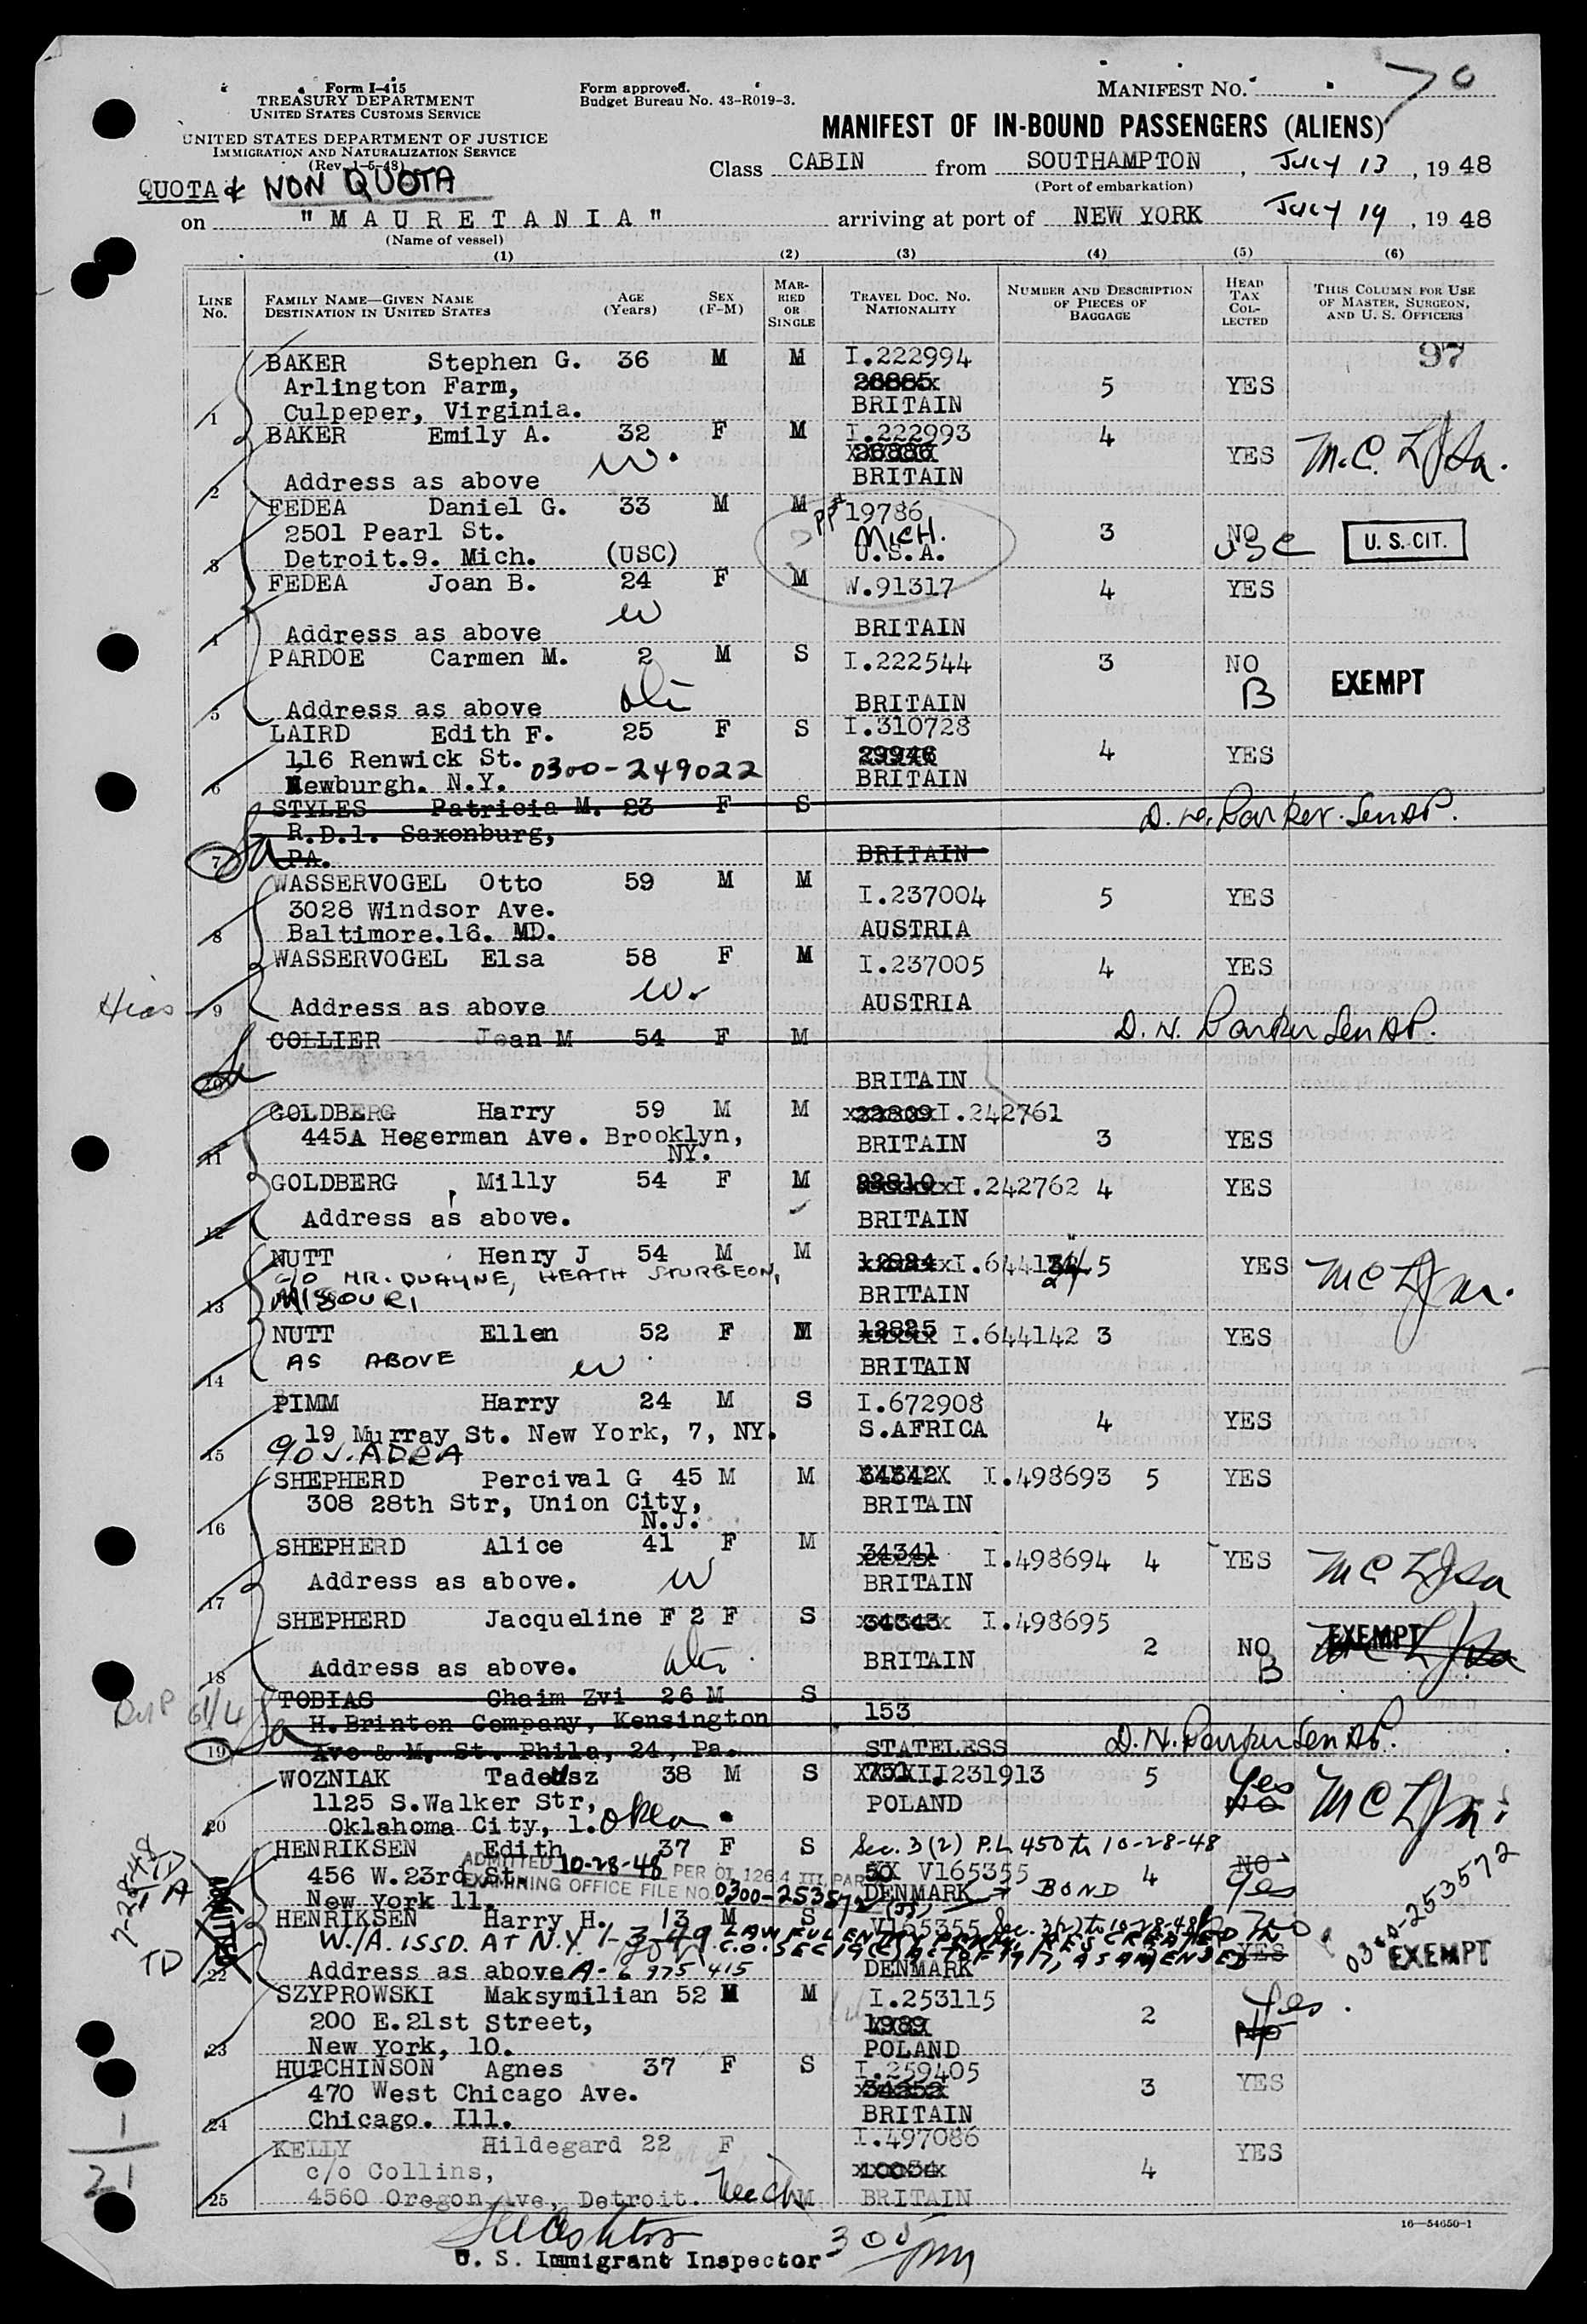 Form I-415
TREASURY DEPARTMENT
UNITED STATES CUSTOMS SERVICE
UNITED STATES DEPARTMENT OF JUSTICE
IMMIGRATION AND NATURALIZATION SERVICE
(Rev. 1-5-48)
Form approved.
Budget Bureau No. 43-R019-3.
MANIFEST NO. 70
MANIFEST OF IN-BOUND PASSENGERS (ALIENS)
Class CABIN from SOUTHAMPTON, July 13, 1948
(Port of embarkation)
QUOTA & NON QUOTA
on "MAURETANIA" arriving at port of NEW YORK July 19, 1948
(Name of vessel)
(1) (2) (3) (4) (5) (6)
LINE No. FAMILY NAME—GIVEN NAME DESTINATION IN UNITED STATES AGE (Years) SEX (F-M) MARRIED OR SINGLE TRAVEL DOC. NO. NATIONALITY NUMBER AND DESCRIPTION OF PIECES OF BAGGAGE HEAD TAX COLLECTED THIS COLUMN FOR USE OF MASTER, SURGEON, AND U. S. OFFICERS
97
BAKER Stephen G. 36 M M I.222994
Arlington Farm, 26885 5 YES
1 Culpeper, Virginia. BRITAIN
BAKER Emily A. 32 F M I.222993 4
W. 26886 YES
2 Address as above BRITAIN
FEDEA Daniel G. 33 M M PP# 19786
2501 Pearl St. MICH. 3 NO USC U. S. CIT.
3 Detroit.9. Mich. (USC) U.S.A.
FEDEA Joan B. 24 F M W.91317 4 YES
W
4 Address as above BRITAIN
PARDOE Carmen M. 2 M S I.222544 3 NO
B EXEMPT
5 Address as above BRITAIN
LAIRD Edith F. 25 F S I.310728
116 Renwick St. 29946 4 YES
6 Newburgh. N.Y. 0300-249022 BRITAIN
STYLES Patricia M. 23 F S
R.D.1. Saxonburg,
7 PA. BRITAIN
WASSERVOGEL Otto 59 M M I.237004 5 YES
3028 Windsor Ave.
8 Baltimore.16. MD. AUSTRIA
WASSERVOGEL Elsa 58 F M I.237005 4 YES
W.
Hias 9 Address as above AUSTRIA
COLLIER Jean M 54 F M
10 BRITAIN
GOLDBERG Harry 59 M M 22809 I.242761
445A Hegerman Ave. Brooklyn, BRITAIN 3 YES
11 NY.
GOLDBERG Milly 54 F M 22810 I.242762 4 YES
12 Address as above. BRITAIN
NUTT Henry J 54 M M 12824 5 YES
C/O MR. DUAYNE, HEATH STURGEON,
13 MISSOURI BRITAIN
NUTT Ellen 52 F M 12825 I.644142 3 YES
AS ABOVE W
14 BRITAIN
PIMM Harry 24 M S I.672908
19 Murray St. New York, 7, NY. S.AFRICA 4 YES
15
SHEPHERD Percival G 45 M M 34342 I.498693 5 YES
308 28th Str, Union City, BRITAIN
16 N.J.
SHEPHERD Alice 41 F M 34341 I.498694 4 YES
17 Address as above. W BRITAIN
SHEPHERD Jacqueline F 2 F S 34343 I.498695
2 NO B EXEMPT
18 Address as above. BRITAIN
TOBIAS Chaim Zvi 26 M S 153
H.Brinton Company, Kensington
19 Ave & M. St. Phila, 24, Pa. STATELESS
WOZNIAK Tadeusz 38 M S 751 I231913 5 Yes No
1125 S.Walker Str, POLAND
20 Oklahoma City, 1. Okla.
HENRIKSEN Edith 37 F S Sec. 3(2) P.L. 450 to 10-28-48
ADMITTED 10-28-48 PER OI 126.4 III PAR
456 W.23rd St. 50 V165355 4 NO Yes
EXAMINING OFFICE FILE NO. 0300-253572
New York 11. DENMARK → BOND
7-28-48 TD TA
ADMITTED
HENRIKSEN Harry H. 13 M S V165355 Sec. 3(2) to 10-28-48 NO
W./A. ISSD. AT N.Y. 1-3-49 LAWFUL ENTRY
C.O. SEC 19(c) ACT OF 1917, AS AMENDED YES
TD 22 Address as above A-6 975 415 DENMARK 0300-253572 EXEMPT
SZYPROWSKI Maksymilian 52 M M I.253115 Yes.
200 E.21st Street, 1989 2 No
23 New York, 10. POLAND
HUTCHINSON Agnes 37 F S I.259405
470 West Chicago Ave. 34252 3 YES
24 Chicago. Ill. BRITAIN
KELLY Hildegard 22 F I.497086 YES
c/o Collins, 10054 4
25 4560 Oregon Ave, Detroit. Mich M BRITAIN
1
21
16—54650-1
U. S. Immigrant Inspector 300 pm